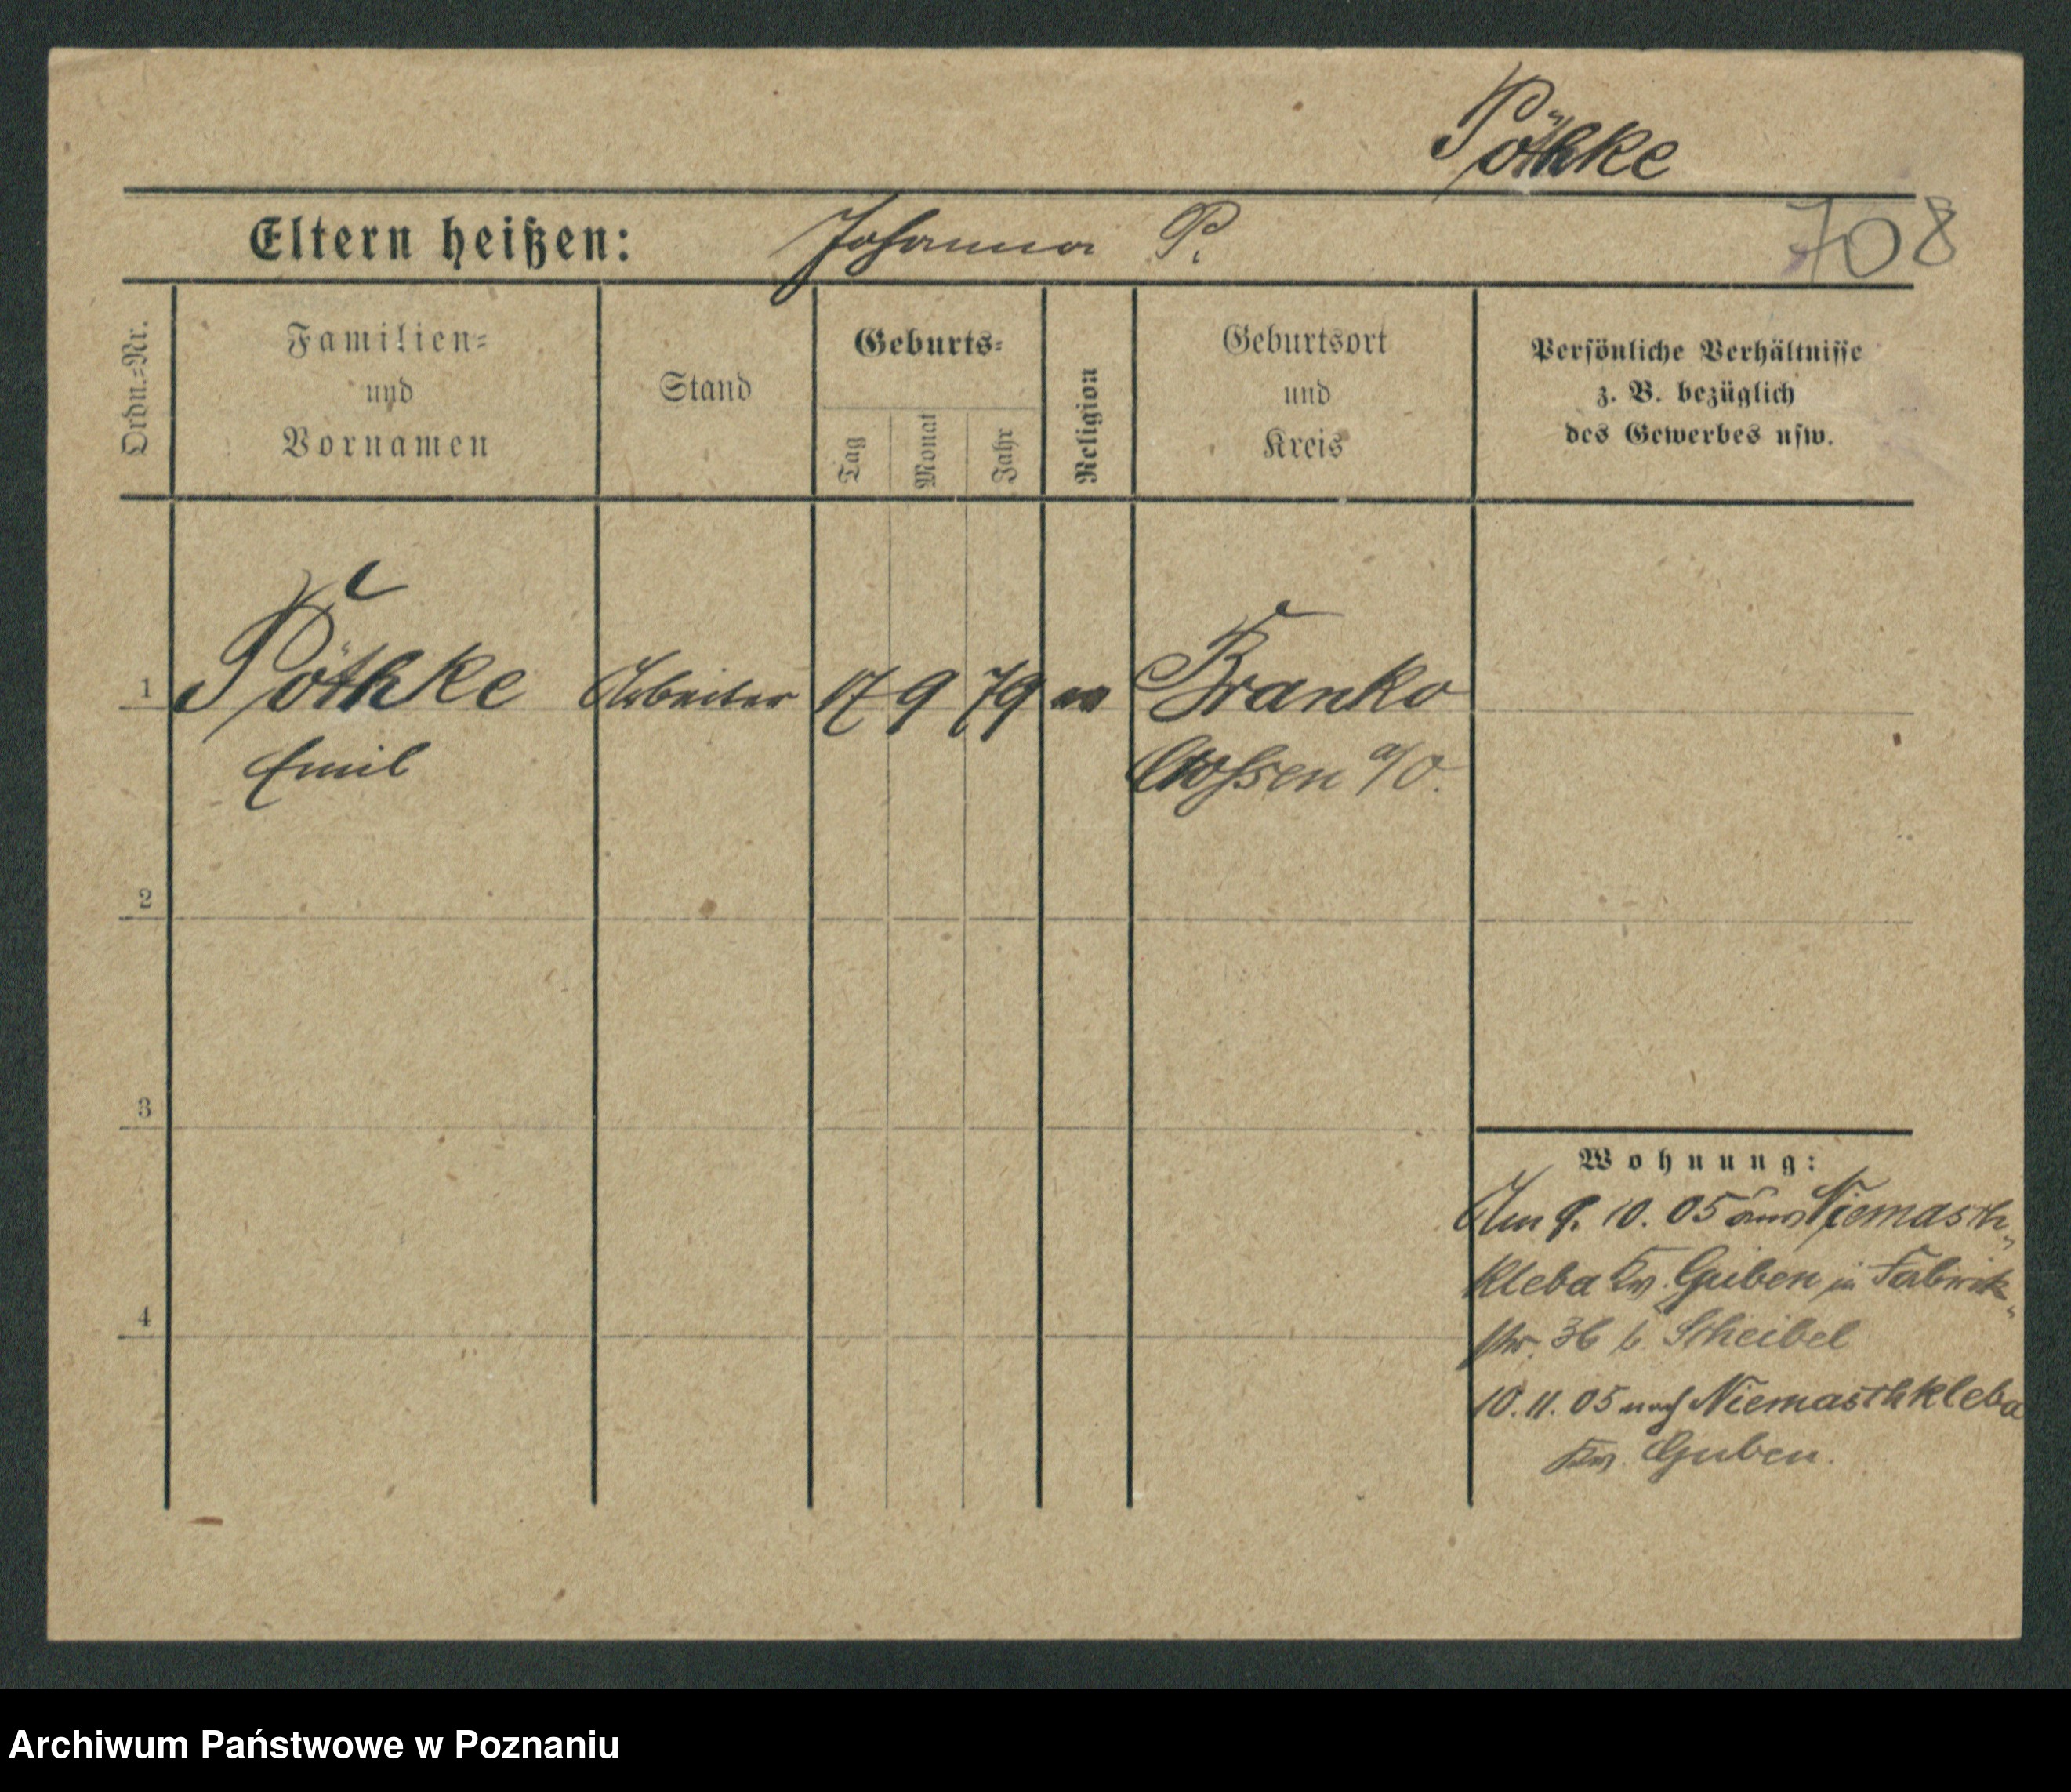 Pöthke
Eltern heißen: Johanna P. 708
Ordn.=Nr.
Familien=
und
Vornamen
Stand
Geburts=
Tag
Monat
Jahr
Religion
Geburtsort
und
Kreis
Persönliche Verhältnisse
z. B. bezüglich
des Gewerbes usw.
1 Pöthke Arbeiter 17 9 79 ev Branko
Emil Crossen a/O.
2
3
4
Wohnung:
Am 9. 10. 05 aus Niemasch-
kleba Kr. Guben in Fabrik-
str. 36 b. Scheibel
10. 11. 05 nach Niemaschkleba
Kr. Guben.
Archiwum Państwowe w Poznaniu